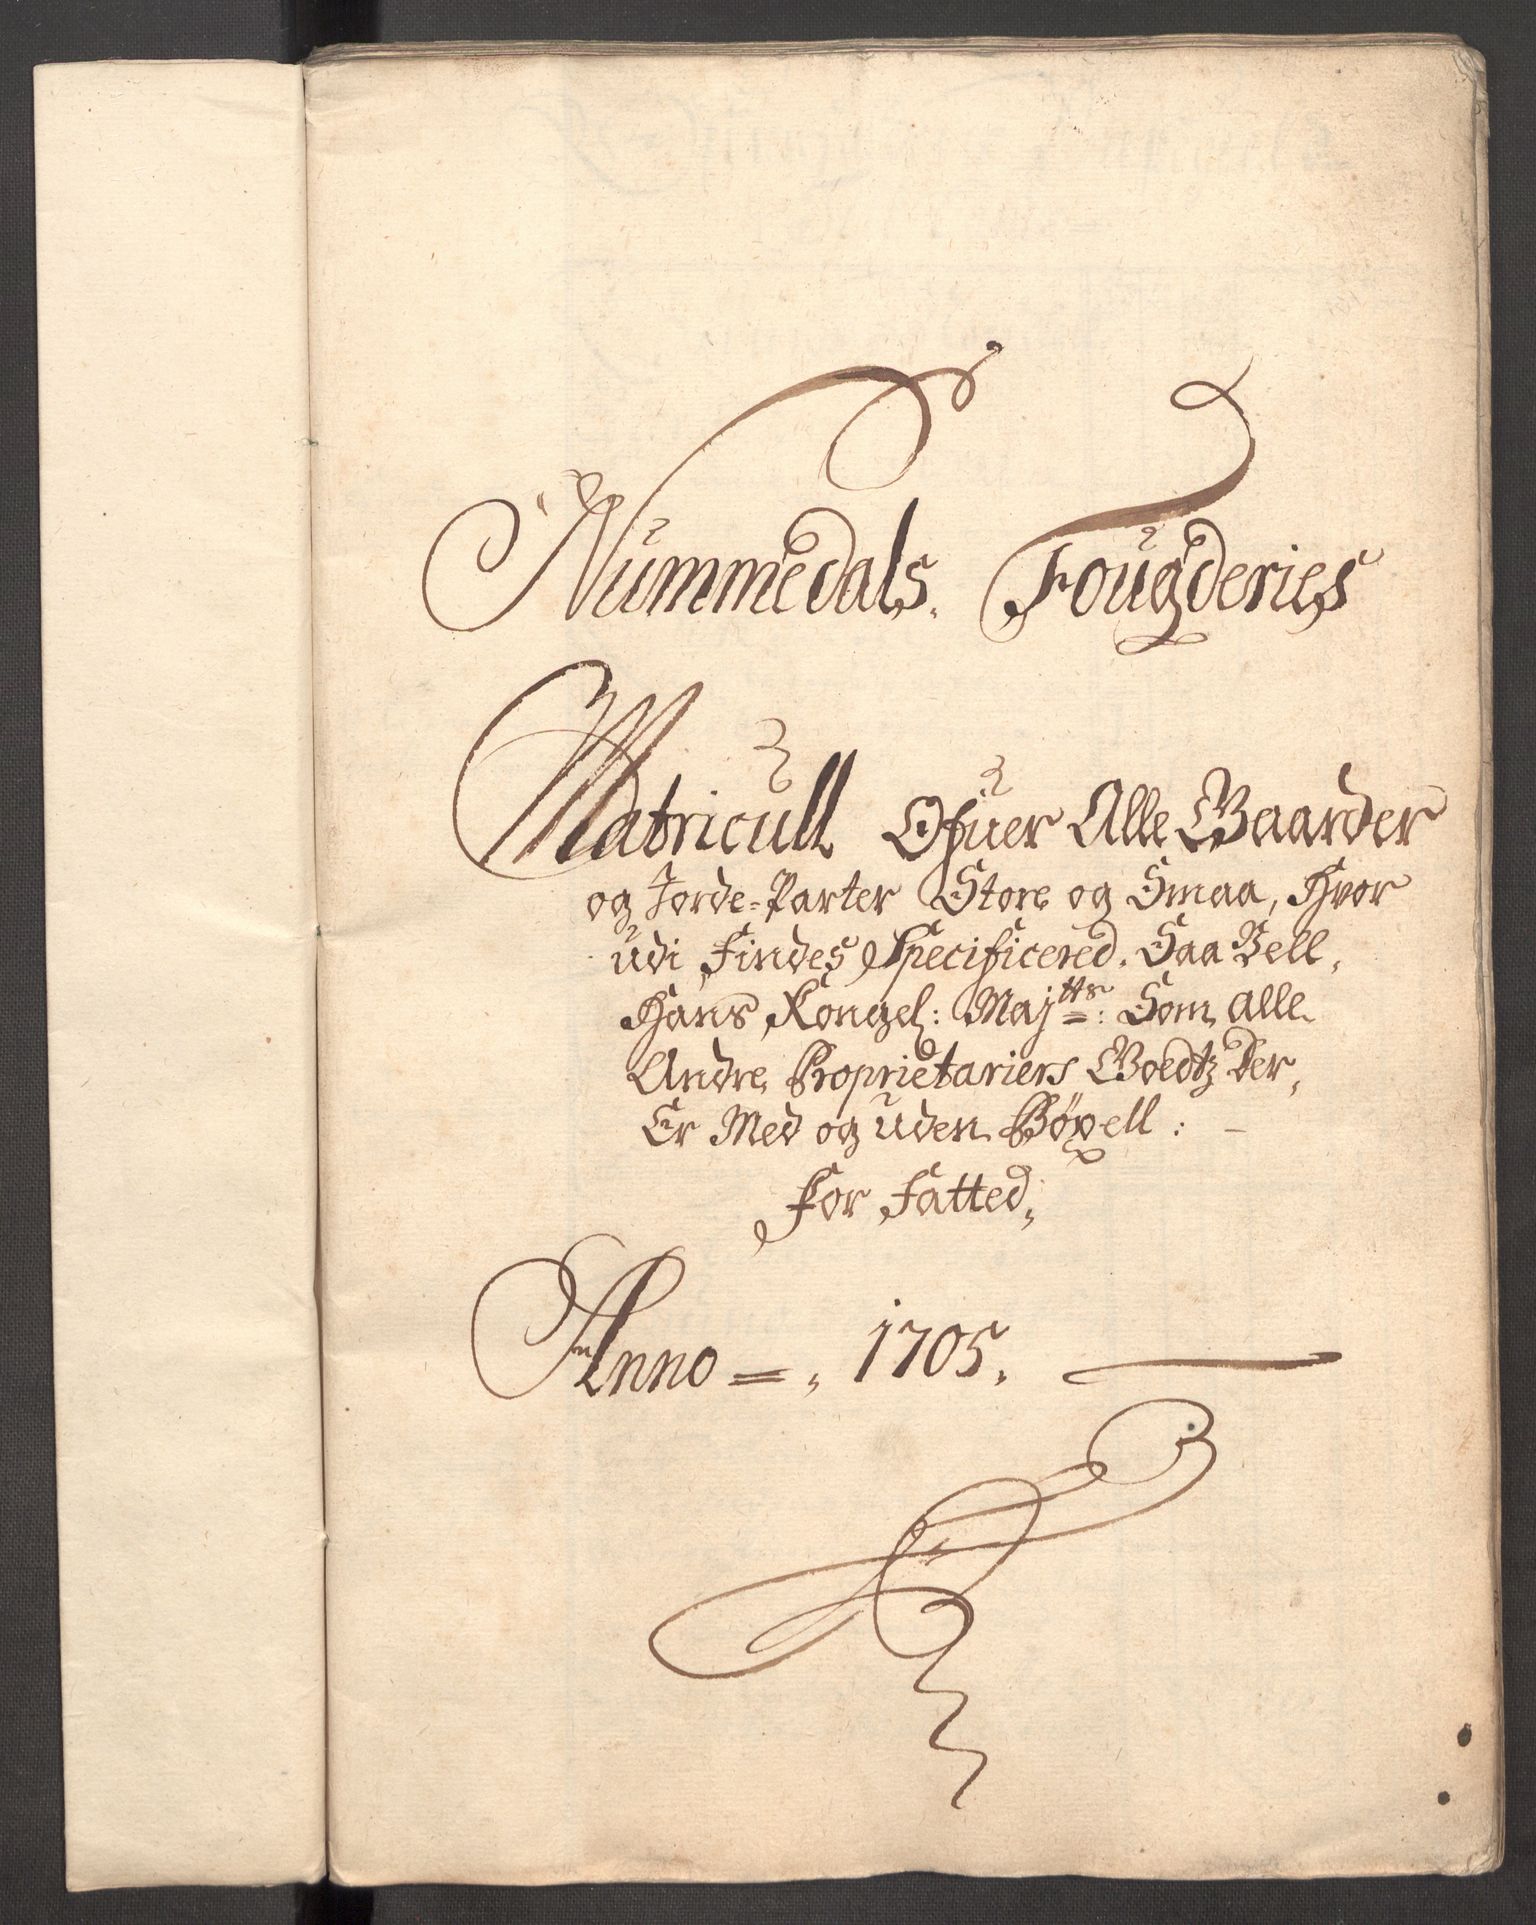 Nummedals. Fougderies
Matricull Ofuer Alle Gaarder
og Jorde=Parter Store og Smaa, Hvor
udi Findes Specificered. Saa Vell,
Hans Kongel: Maj.tts: Som alle
Andre Proprietariers Goedtz Der,
Er Med og uden Bøxell: –
For Fatted,
Anno =, 1705.